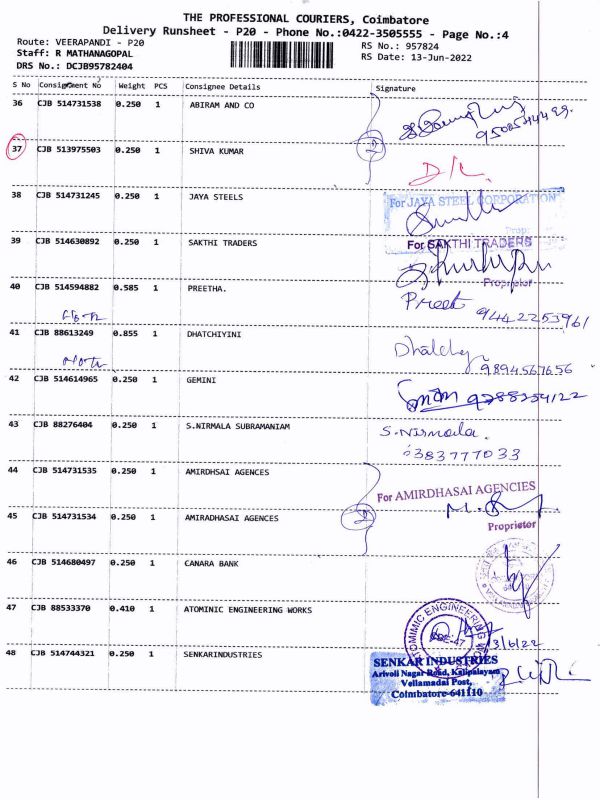 THE PROFESSIONAL COURIERS, Coimbatore
Delivery Runsheet - P20 - Phone No.:0422-3505555 - Page No.:4
Route: VEERAPANDI - P20
Staff: R MATHANAGOPAL
DRS No.: DCJB95782404
RS No.: 957824
RS Date: 13-Jun-2022
S No Consignment No Weight PCS Consignee Details Signature
36 CJB 514731538 0.250 1 ABIRAM AND CO
37 CJB 513975503 0.250 1 SHIVA KUMAR
2
D/L
38 CJB 514731245 0.250 1 JAYA STEELS
For JAYA STEEL CORPORATION
Prop:
39 CJB 514630892 0.250 1 SAKTHI TRADERS
For SAKTHI TRADERS
Proprietor
40 CJB 514594882 0.585 1 PREETHA.
Preet 9442253961
41 CJB 88613249 0.855 1 DHATCHIYINI
9894567656
42 CJB 514614965 0.250 1 GEMINI
9788254122
43 CJB 88276404 0.250 1 S.NIRMALA SUBRAMANIAM
S.Nirmala.
6383777033
44 CJB 514731535 0.250 1 AMIRDHSAI AGENCES
For AMIRDHASAI AGENCIES
45 CJB 514731534 0.250 1 AMIRADHASAI AGENCES
2
Proprietor
46 CJB 514680497 0.250 1 CANARA BANK
47 CJB 88533370 0.410 1 ATOMINIC ENGINEERING WORKS
ATOMIMIC ENGINEERING WORKS
13/6/22
48 CJB 514744321 0.250 1 SENKARINDUSTRIES
SENKAR INDUSTRIES
Arivoli Nagar Road, Kalipalayam
Vellamadai Post,
Coimbatore-641110